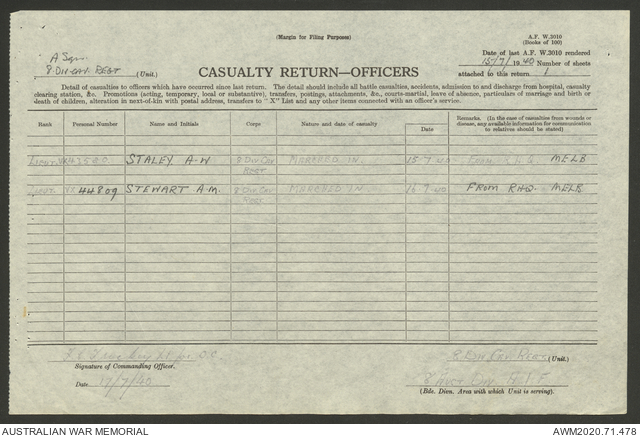 (Margin for Filing Purposes)
A.F. W.3010
(Books of 100)
A Sqn.
8 DIV CAV. REGT (Unit.)
CASUALTY RETURN—OFFICERS
Date of last A.F. W.3010 rendered
15/7/1940 Number of sheets
attached to this return 1
Detail of casualties to officers which have occurred since last return. The detail should include all battle casualties, accidents, admission to and discharge from hospital, casualty
clearing station, &c. Promotions (acting, temporary, local or substantive), transfers, postings, attachments, &c., courts-martial, leave of absence, particulars of marriage and birth or
death of children, alteration in next-of-kin with postal address, transfers to "X" List and any other items connected with an officer's service.
Rank Personal Number Name and Initials Corps Nature and date of casualty Date Remarks. (In the case of casualties from wounds or
disease, any available information for communication
to relatives should be stated)
LIEUT. STALEY A-W 8 DIV CAV REGT MARCHED IN 15-7-40 FROM R.H.Q. MELB
LIEUT. VX 44809 STEWART A.M. 8 DIV CAV REGT MARCHED IN 16-7-40 FROM RHQ. MELB
O.C.
Signature of Commanding Officer.
8 DIV CAV REGT. (Unit.)
Date 17/7/40
8 AUST DIV.
(Bde. Divn. Area with which Unit is serving).
AUSTRALIAN WAR MEMORIAL
AWM2020.71.478